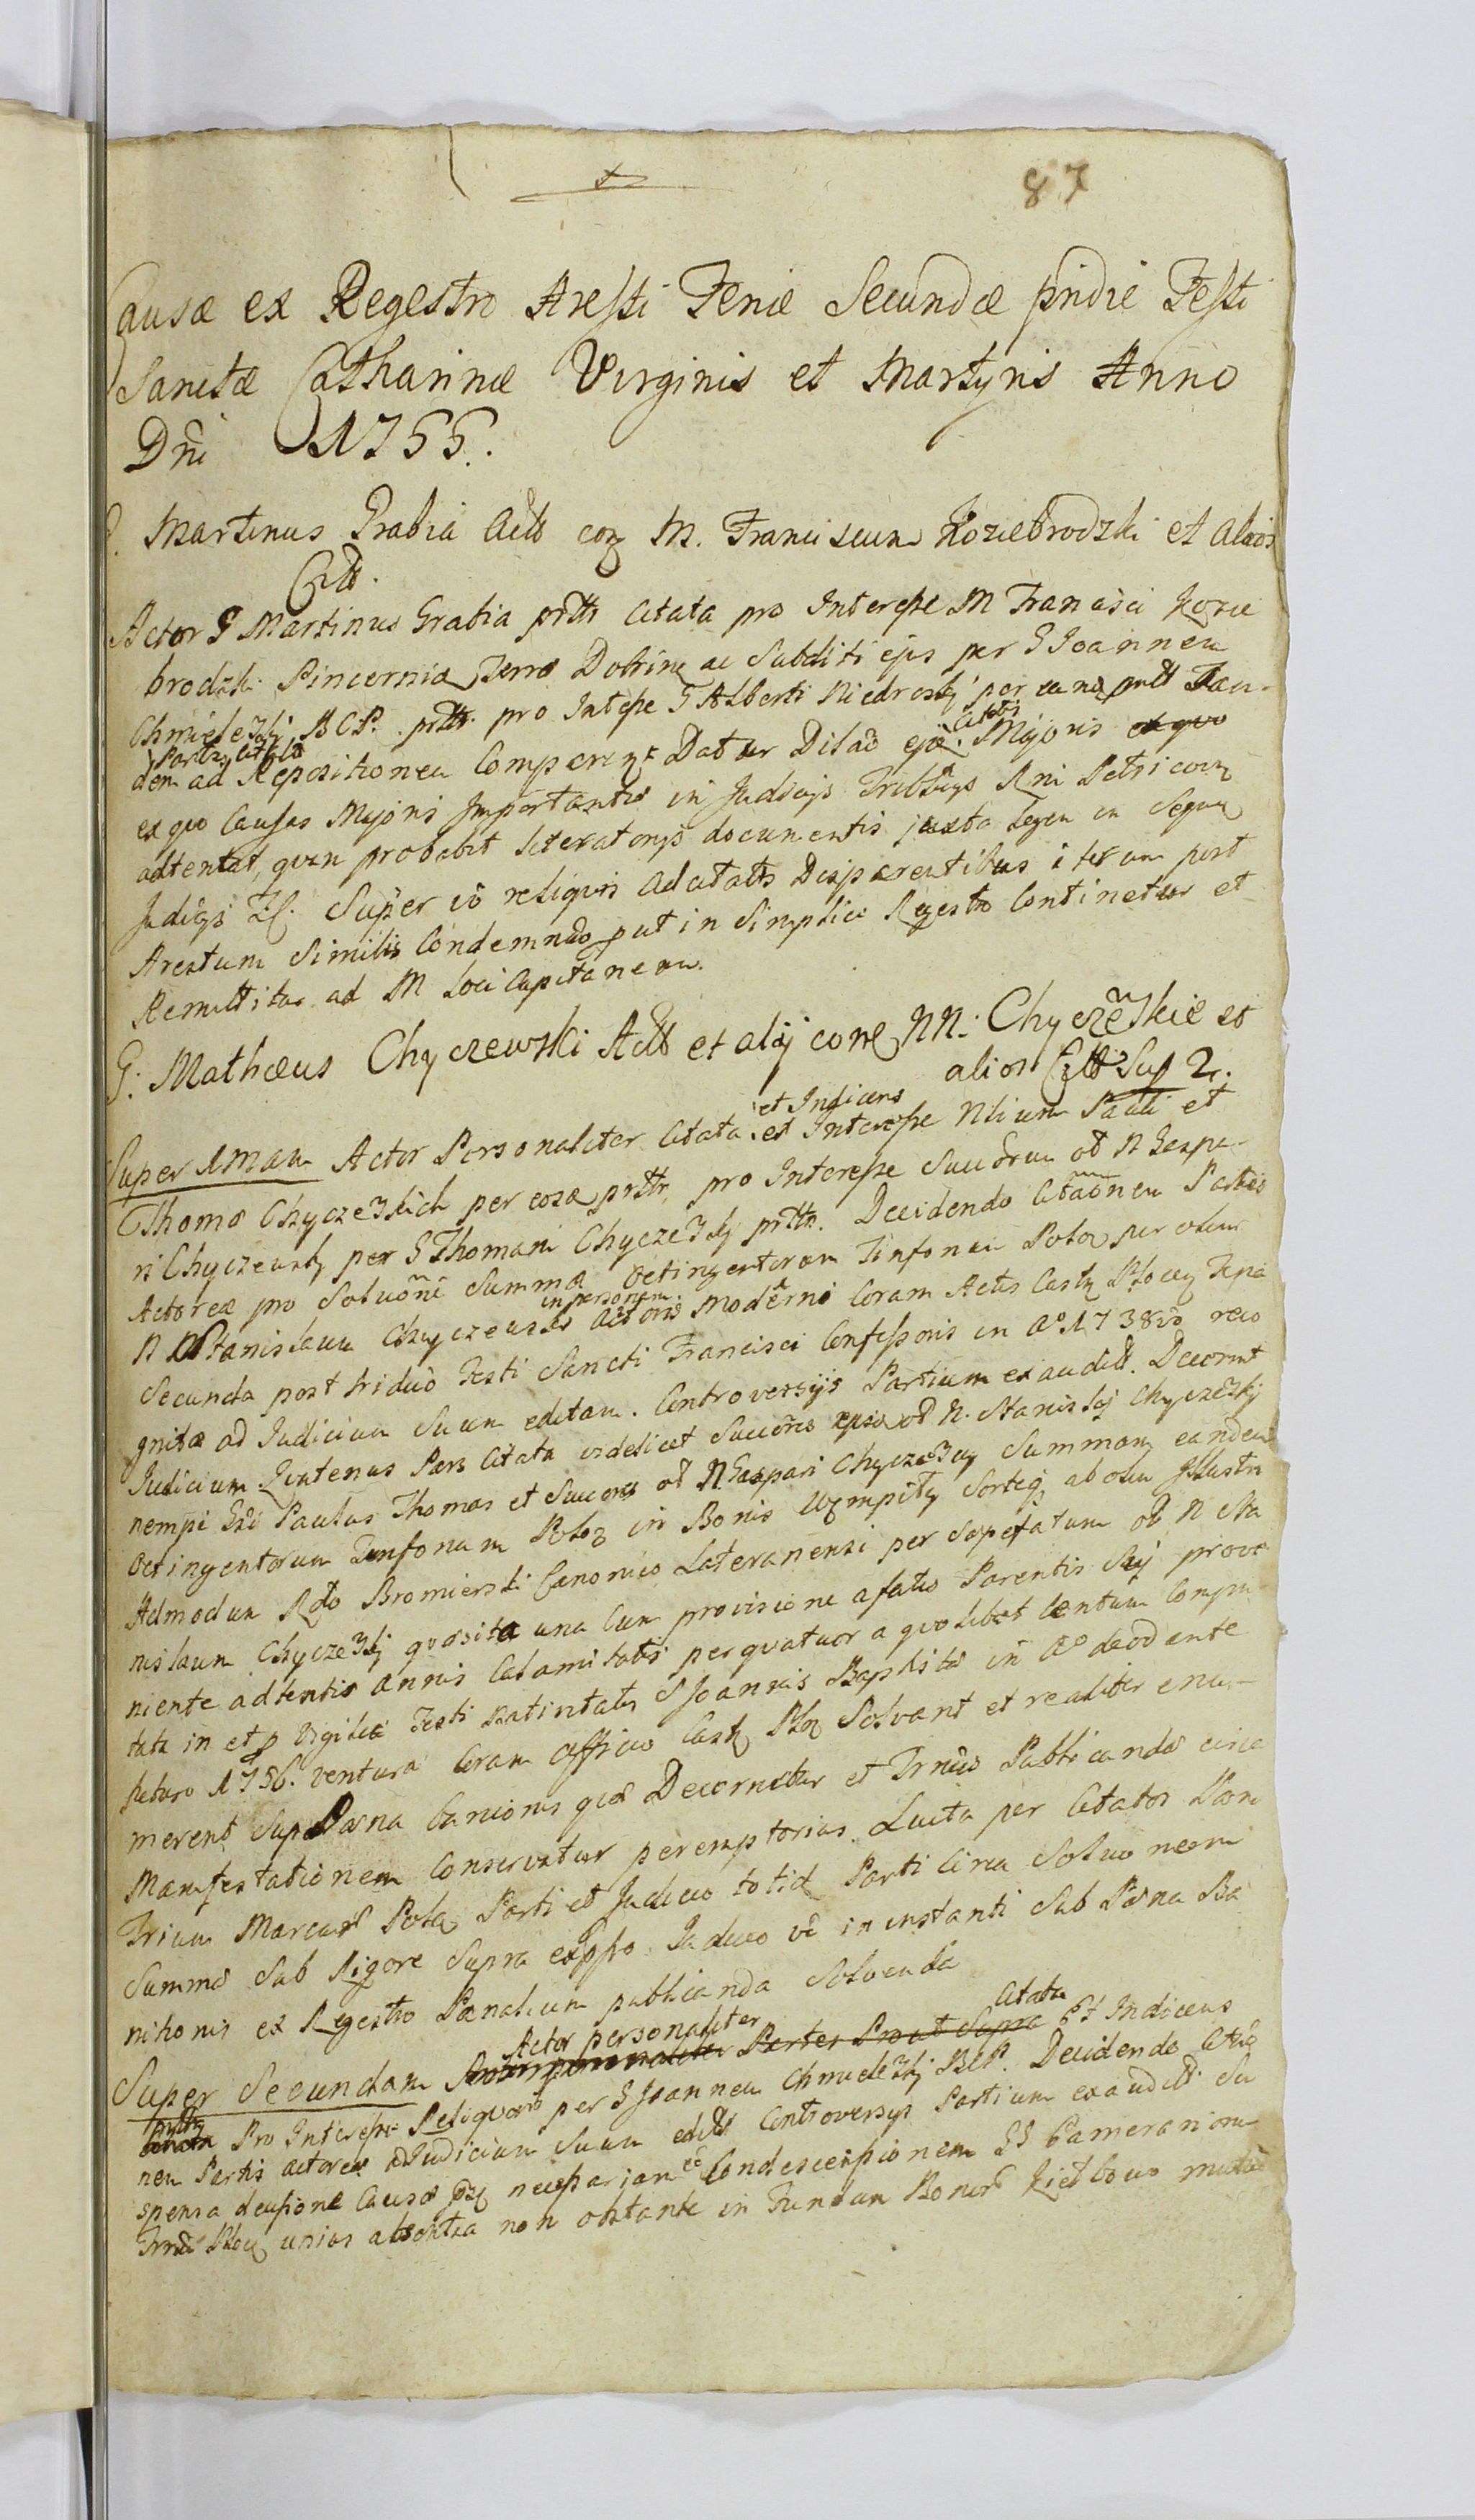 87
Causæ ex Regestro Aresti Feriæ Secundæ pridie Festi
Sanctæ Catharinæ Virginis et Martyris Anno
Dni 1755.
Martinus Grabia Act con M. Franciscum Koziebrodzki et alios
Citt.
Actor G Martinus Grabia prtts Citata pro Interesse M Francisci Kozie
brodzki Pincernia Terræ Dobrine ac Subditi ejus per G Joannem
Chmielewski B C P. prtts. pro Intesse G Alberti Niedroski per eund prtt Tan-
dem ad Repositionem Comparent Datur Dilao ejus Citatis Majoris ex quo
ex quo Causas Majoris Importantiæ in Judicijs Triblijs Rni Petricovien
adtentat, quam probabit literatorijs documentis juxta legem in Sequen
Judicijs Super vo reliquis adcitatis Disparentibus iterum post
Arestum Similis Condemnao put in Simplici Regestro Continetur et
Remittitur ad M Loci Capitaneum.
G. Mathæus Chyczewski Act et alij con NN. Chyczewskie et
alios Citt Sup 2.
Super Imam Actor Personaliter Citata et Indicens et Interesse Nlium Pauli et
Thoma Chyczewskich per eosd prtts, pro Interesse Succorum ol N Gaspa-
ri Chyczewski per G Thomam Chyczewski prtts. Decidendo Citaonem Partis
Actoreæ pro Soluone Summæ Octingentorum Tinfonum Polon per olim
N Stanislaum Chyczewski in personam Actoris Moderni Coram Actis Castr Plocen Feria
Secunda post triduo Festi Sancti Francisci Confessoris in Ao 1738vo reco
gnitæ ad Judicium Suum editam. Controversijs Partium exaudit. Decernit
Judicium Quatenus Pars Citata videlicet Succores ipsius ol N. Stanislaj Chyczewskij
nempe Gsi Paulus Thomas et Succores ol N Gaspari Chyczewskij Summam eandem
Octingentorum Tinfonum Polon in Bonis Wempity Sorteq ab olim Illustri
Admodum Rdo Bromierski Canonico Lateranensi per Sapefatum ol N Sta
nislaum Chyczewskj quæsita una cum provisione a fatis Parentis Suj prove
niente adtentis annis Calamitatis per quatuor a quolibet Centum Compu
tata in et p Vigilia Festi Nativitatis S Joannis Baptistæ in Ao dando ante
futuro 1756. ventura Coram Officio Castr Ploc Solvant et realiter enu-
merent Sup Pœna Banionis quæ Decernitur et Irnuo Publicanda circa
Manifestationem Conservatur peremptorias. Luita per Citatos Pœn
Trium Marcarum Polon Parti et Judicio totid Parti Circa Soluonem
Summæ Sub Rigore Supra expsso Judicio vo in instanti Sub Pœna Ba
nitionis ex Regestro Pœnalium publicanda Solvenda
Super Secundam Actor personaliter Partes Prout Supra Citata Et Indicens
prtts Pro Interesse Reliquorum per G Joannem Chmielewskj BCP. Decidendo Citao
nem Partis actoreæ ad Judicium Suum edit Controversijs Partium exaudit. Su
spensa decisione Causæ necessariam Condescensionem GG Camerariorum
Trris Ploc unius absentia non obstante in Fundum Bonorum Kietbowo